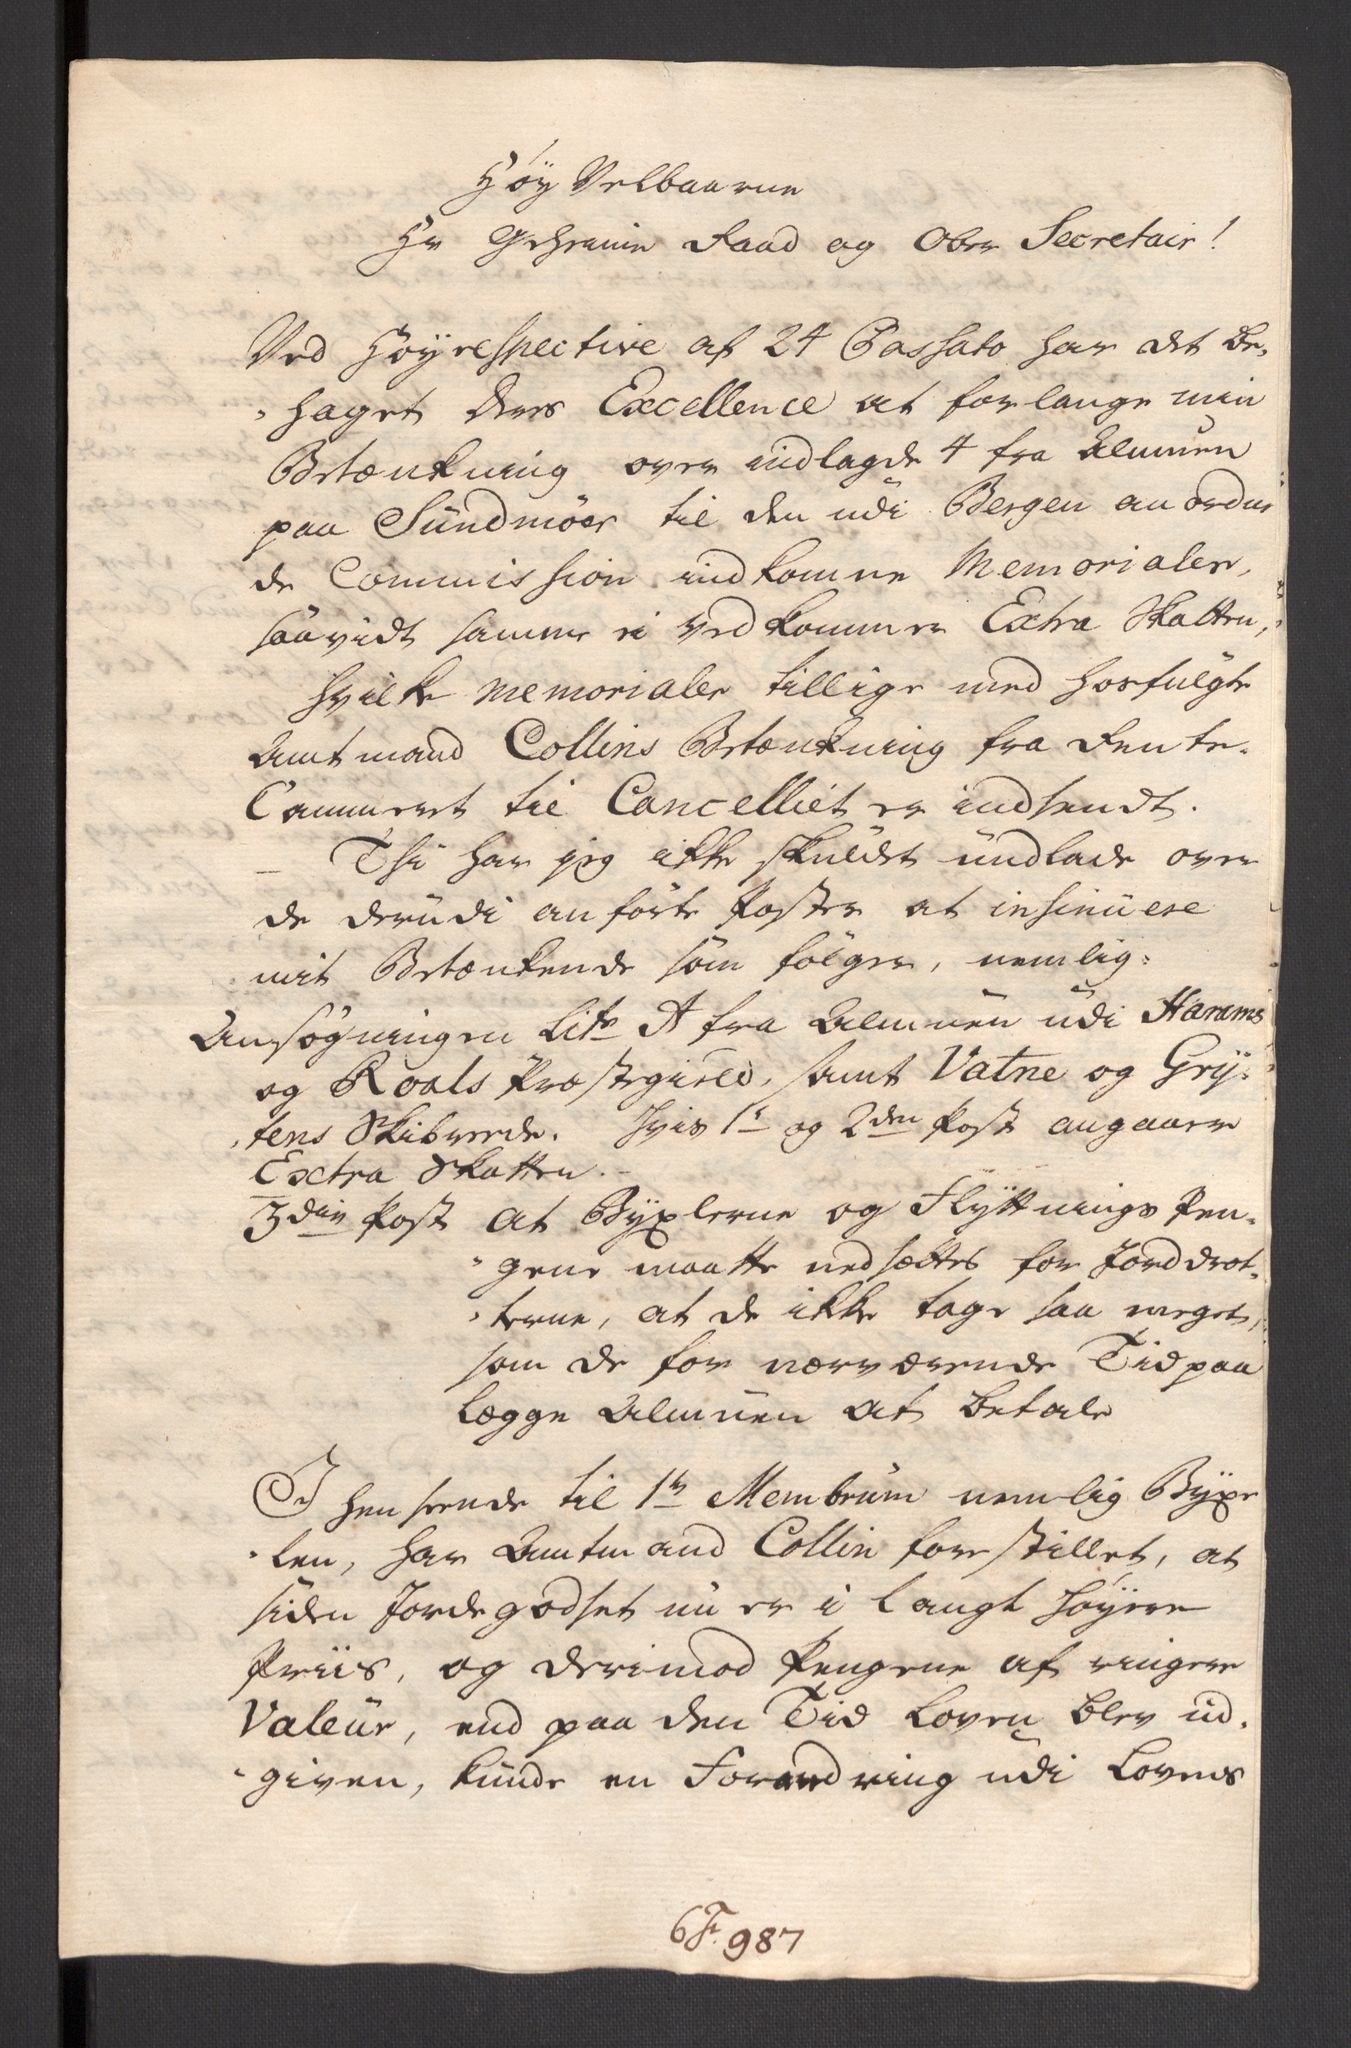 Høy Velbaarne
Hr Geheime Raad og Ober Secretair!
Ved Høyrespective af 24 Passato har det be-
-haget Deres Excellence at forlange min
Betænkning over indlagde 4 fra Almuen
paa Sündmöer til den udi Bergen anordne
de Commission indkomne Memorialer,
saavidt samme ei vedkommer Extra Skatten,
hvilke memorialer tillige med hosfulgte
Amtmand Collins Betænkning fra Rente-
Cammeret til Cancelliet er indsendt.
Thi har jeg ikke skuldet undlade over
de derudi anførte Poster at insinuere
mit Betænkende som følger, nemlig:
Ansøgningen Litr A fra Almuen udi Harams
og Roals Præstegield, samt Vatne og Gry-
-tens Skibreede. Hvis 1s og 2den Post angaaer
Extra Skatten.
3die Post at Byxlerne og Flyttnings Pen-
-gene maatte nedsættes for Jorddrot-
-terne, at de ikke tage saa meget,
som de for nærværende Tid paa
lægge Almuen at betale
I henseende til 1te Membrum nemlig Byxe
-len, har Amtmand Collin forestillet, at
siden Jordegodset nu er i langt høyere
Priis, og derimod Pengene af ringere
Valeur, end paa den Tid Loven blev ud-
-given, kunde en Forandring udi Lovens
987